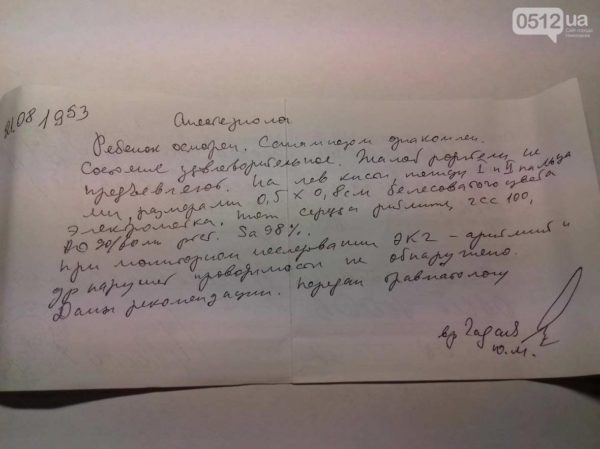 0512.ua
Сайт города
Николаева
08 1953
Анестезиолог
Ребенок осмотрен. С анамнезом ознакомлен.
Состояние удовлетворительное. Жалоб родители не
предъявляют. На лев кисти, между I и II пальца
ми, размерами 0,5 х 0,8 см белесоватого цвета
электрометка. Тоны сердца ритмичн, ЧСС 100,
Sa 98%.
При мониторном исследовании ЭКГ - аритмий и
др нарушен проводимости не обнаружено.
Даны рекомендации. Передан травматологу
вр
Ю.М.